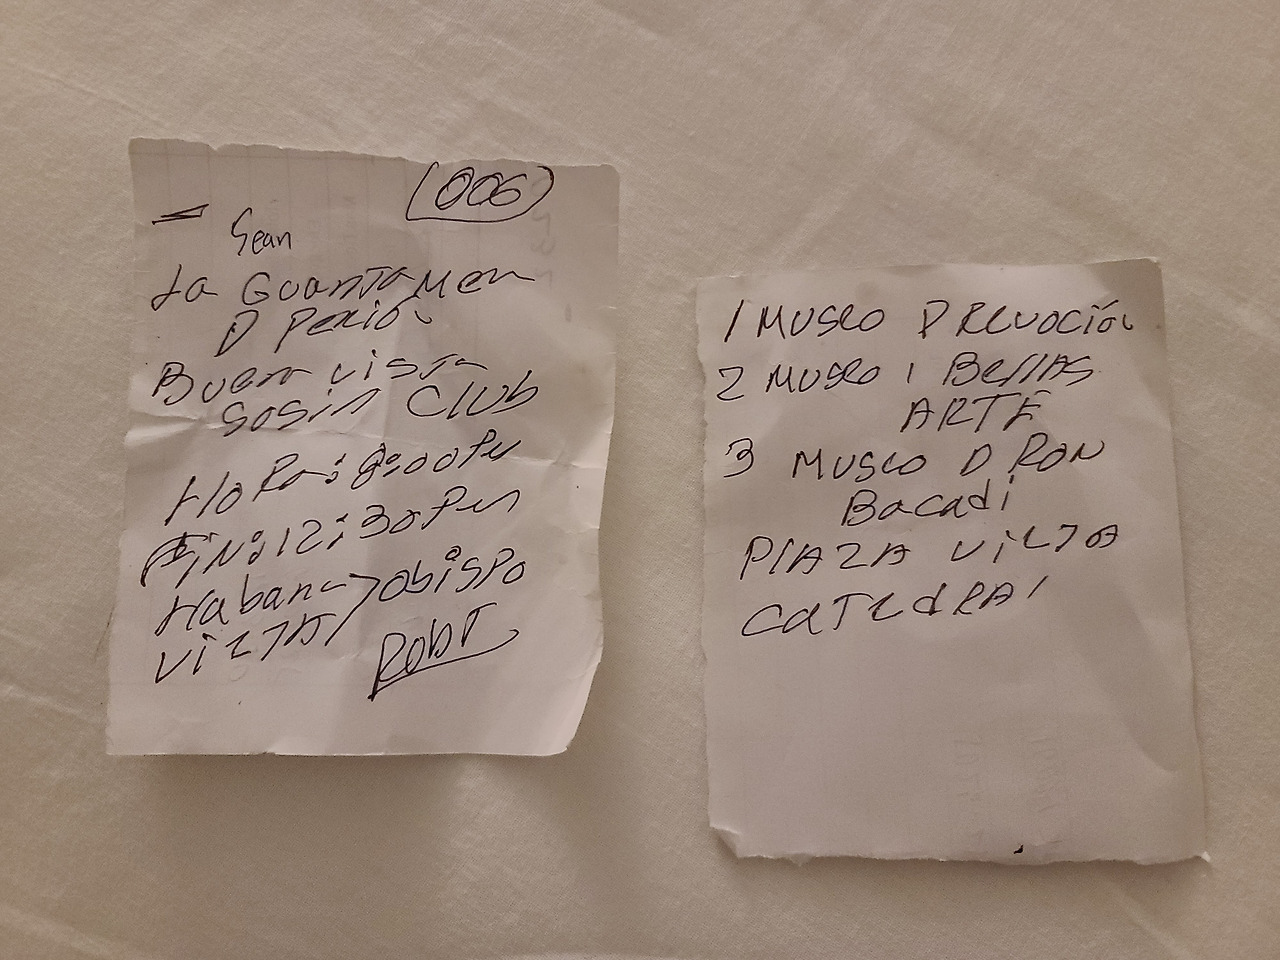 006
Sean
La GuanTaMer
D Perior
Buena visTa
Sosin Club
HoRa: 8:00 Pm
Fin: 12:30 Pm
Habana obispo
vieJA
RobT
1 Museo D Revoción
2 Museo 1 BellAS
ARTE
3 Museo D RON
Bacadi
PlAZA vieJA
CaTedRAl